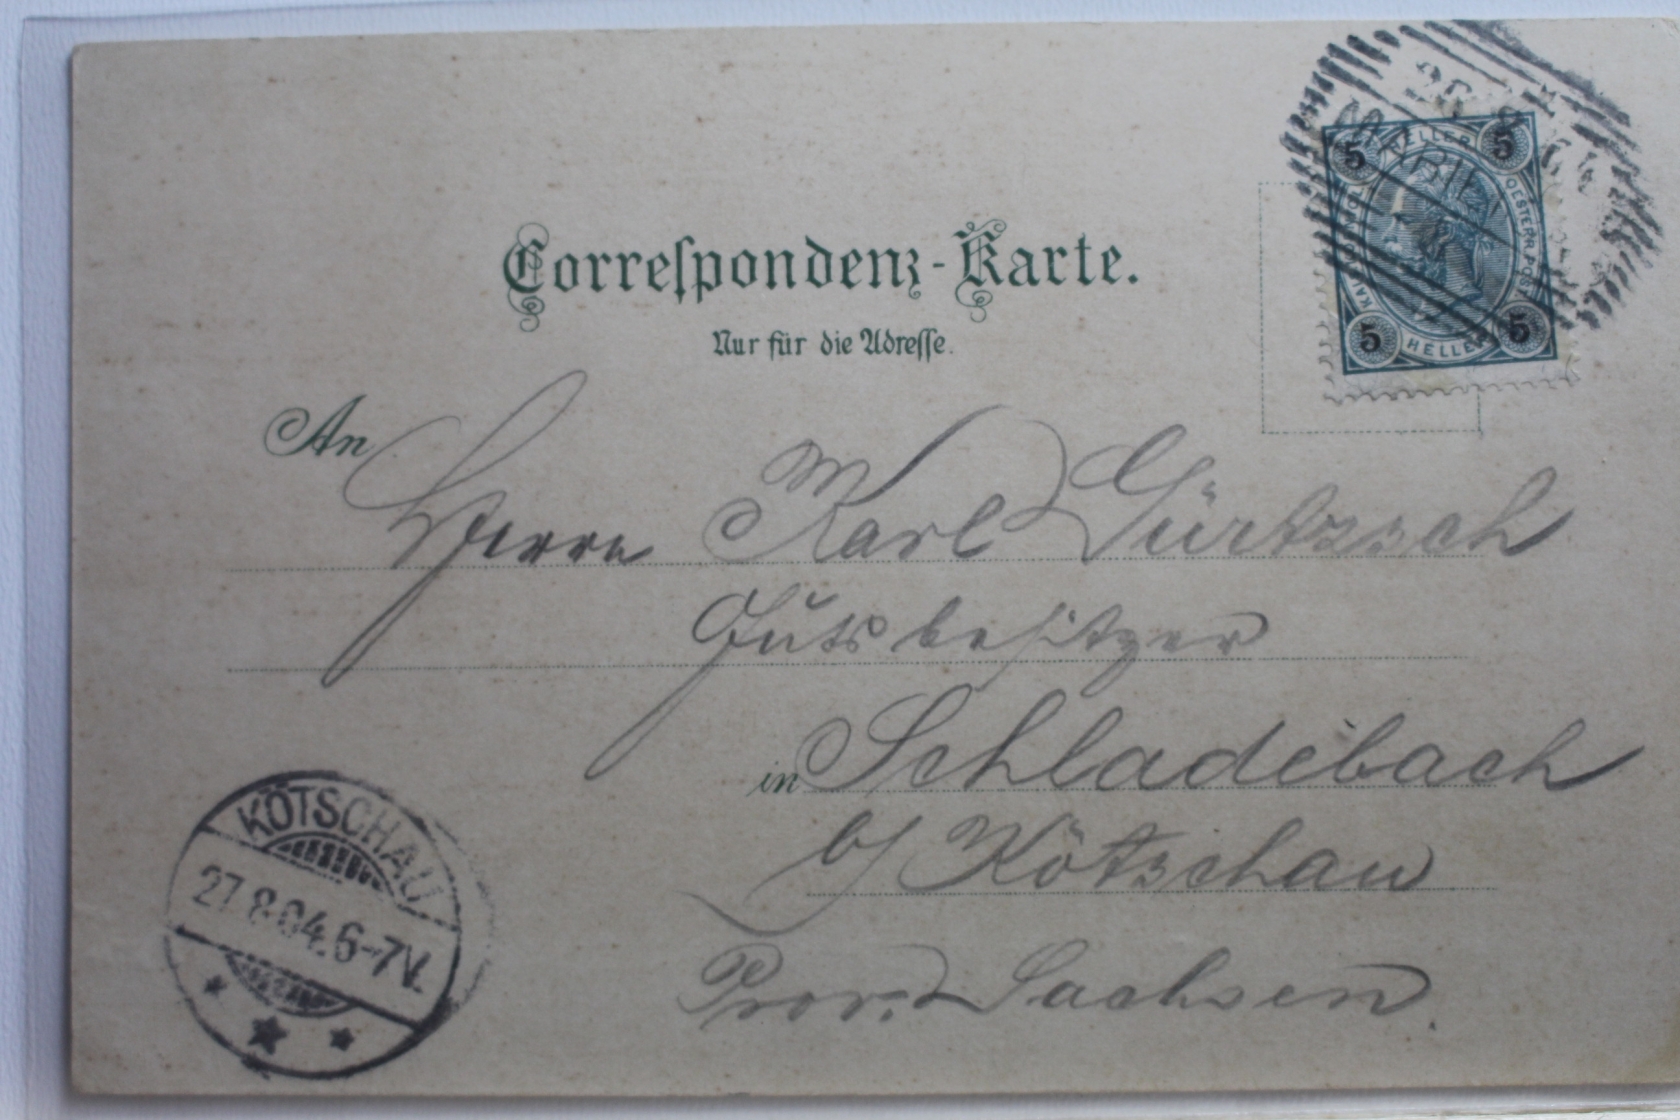 Correspondenz-Karte.
Nur für die Adresse.
5 HELLER 5
OESTERR. POST
5 HELLER 5
An Herrn Karl Gürtzsch
Gutsbesitzer
in Schladebach
b/ Kötschau
Prov. Sachsen.
KÖTSCHAU
27.8.04. 6-7V.